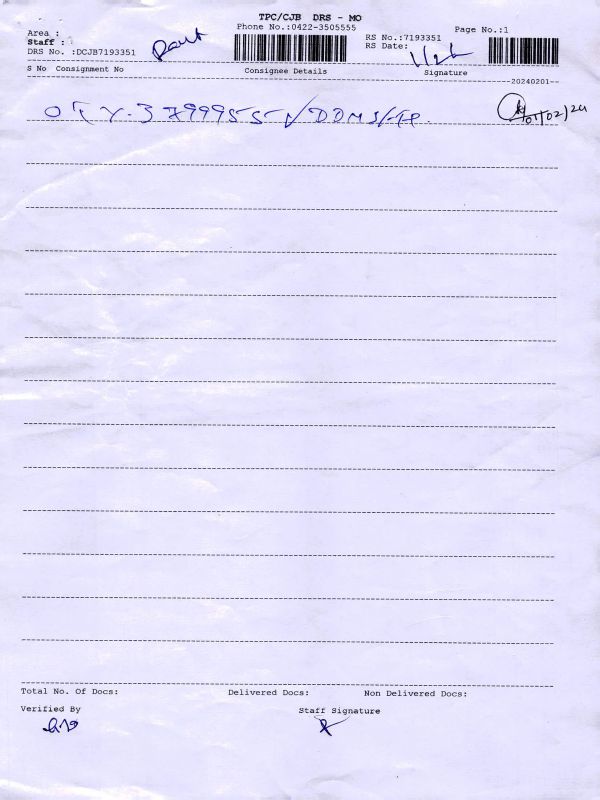 TPC/CJB DRS - MO
Phone No.:0422-3505555
Page No.:1
Area :
Staff :
DRS No. :DCJB7193351
RS No.:7193351
RS Date:
S No Consignment No
Consignee Details
Signature
20240201
3799955 / DDMS/
01/02/24
Total No. Of Docs:
Delivered Docs:
Non Delivered Docs:
Verified By
Staff Signature